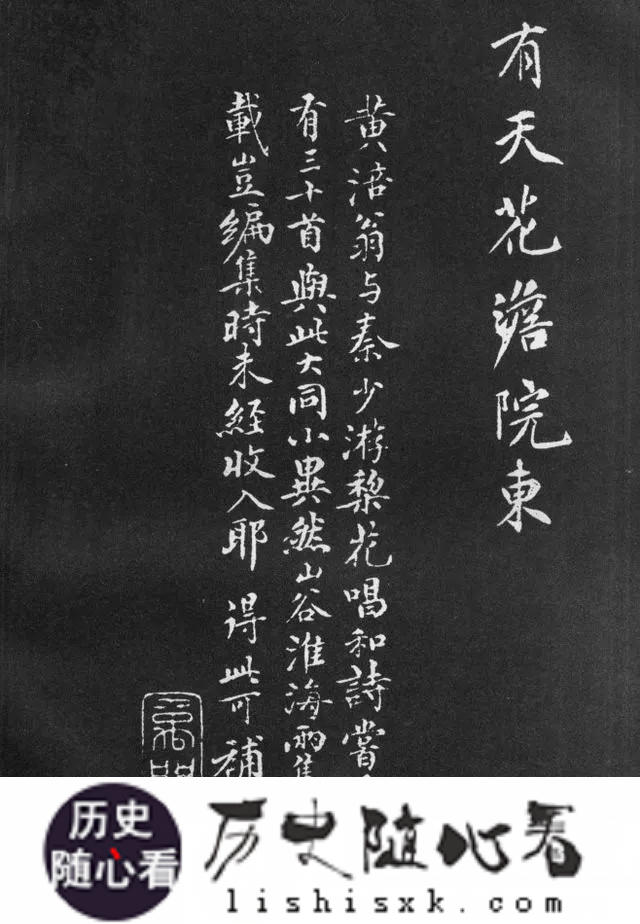 有天花澹院東
黄涪翁与秦少游梨花唱和詩嘗
有三十首與此大同小異然山谷淮海兩集
載豈編集時未經收入耶得此可補
历史
随心看
历史随心看
lishisxk.com